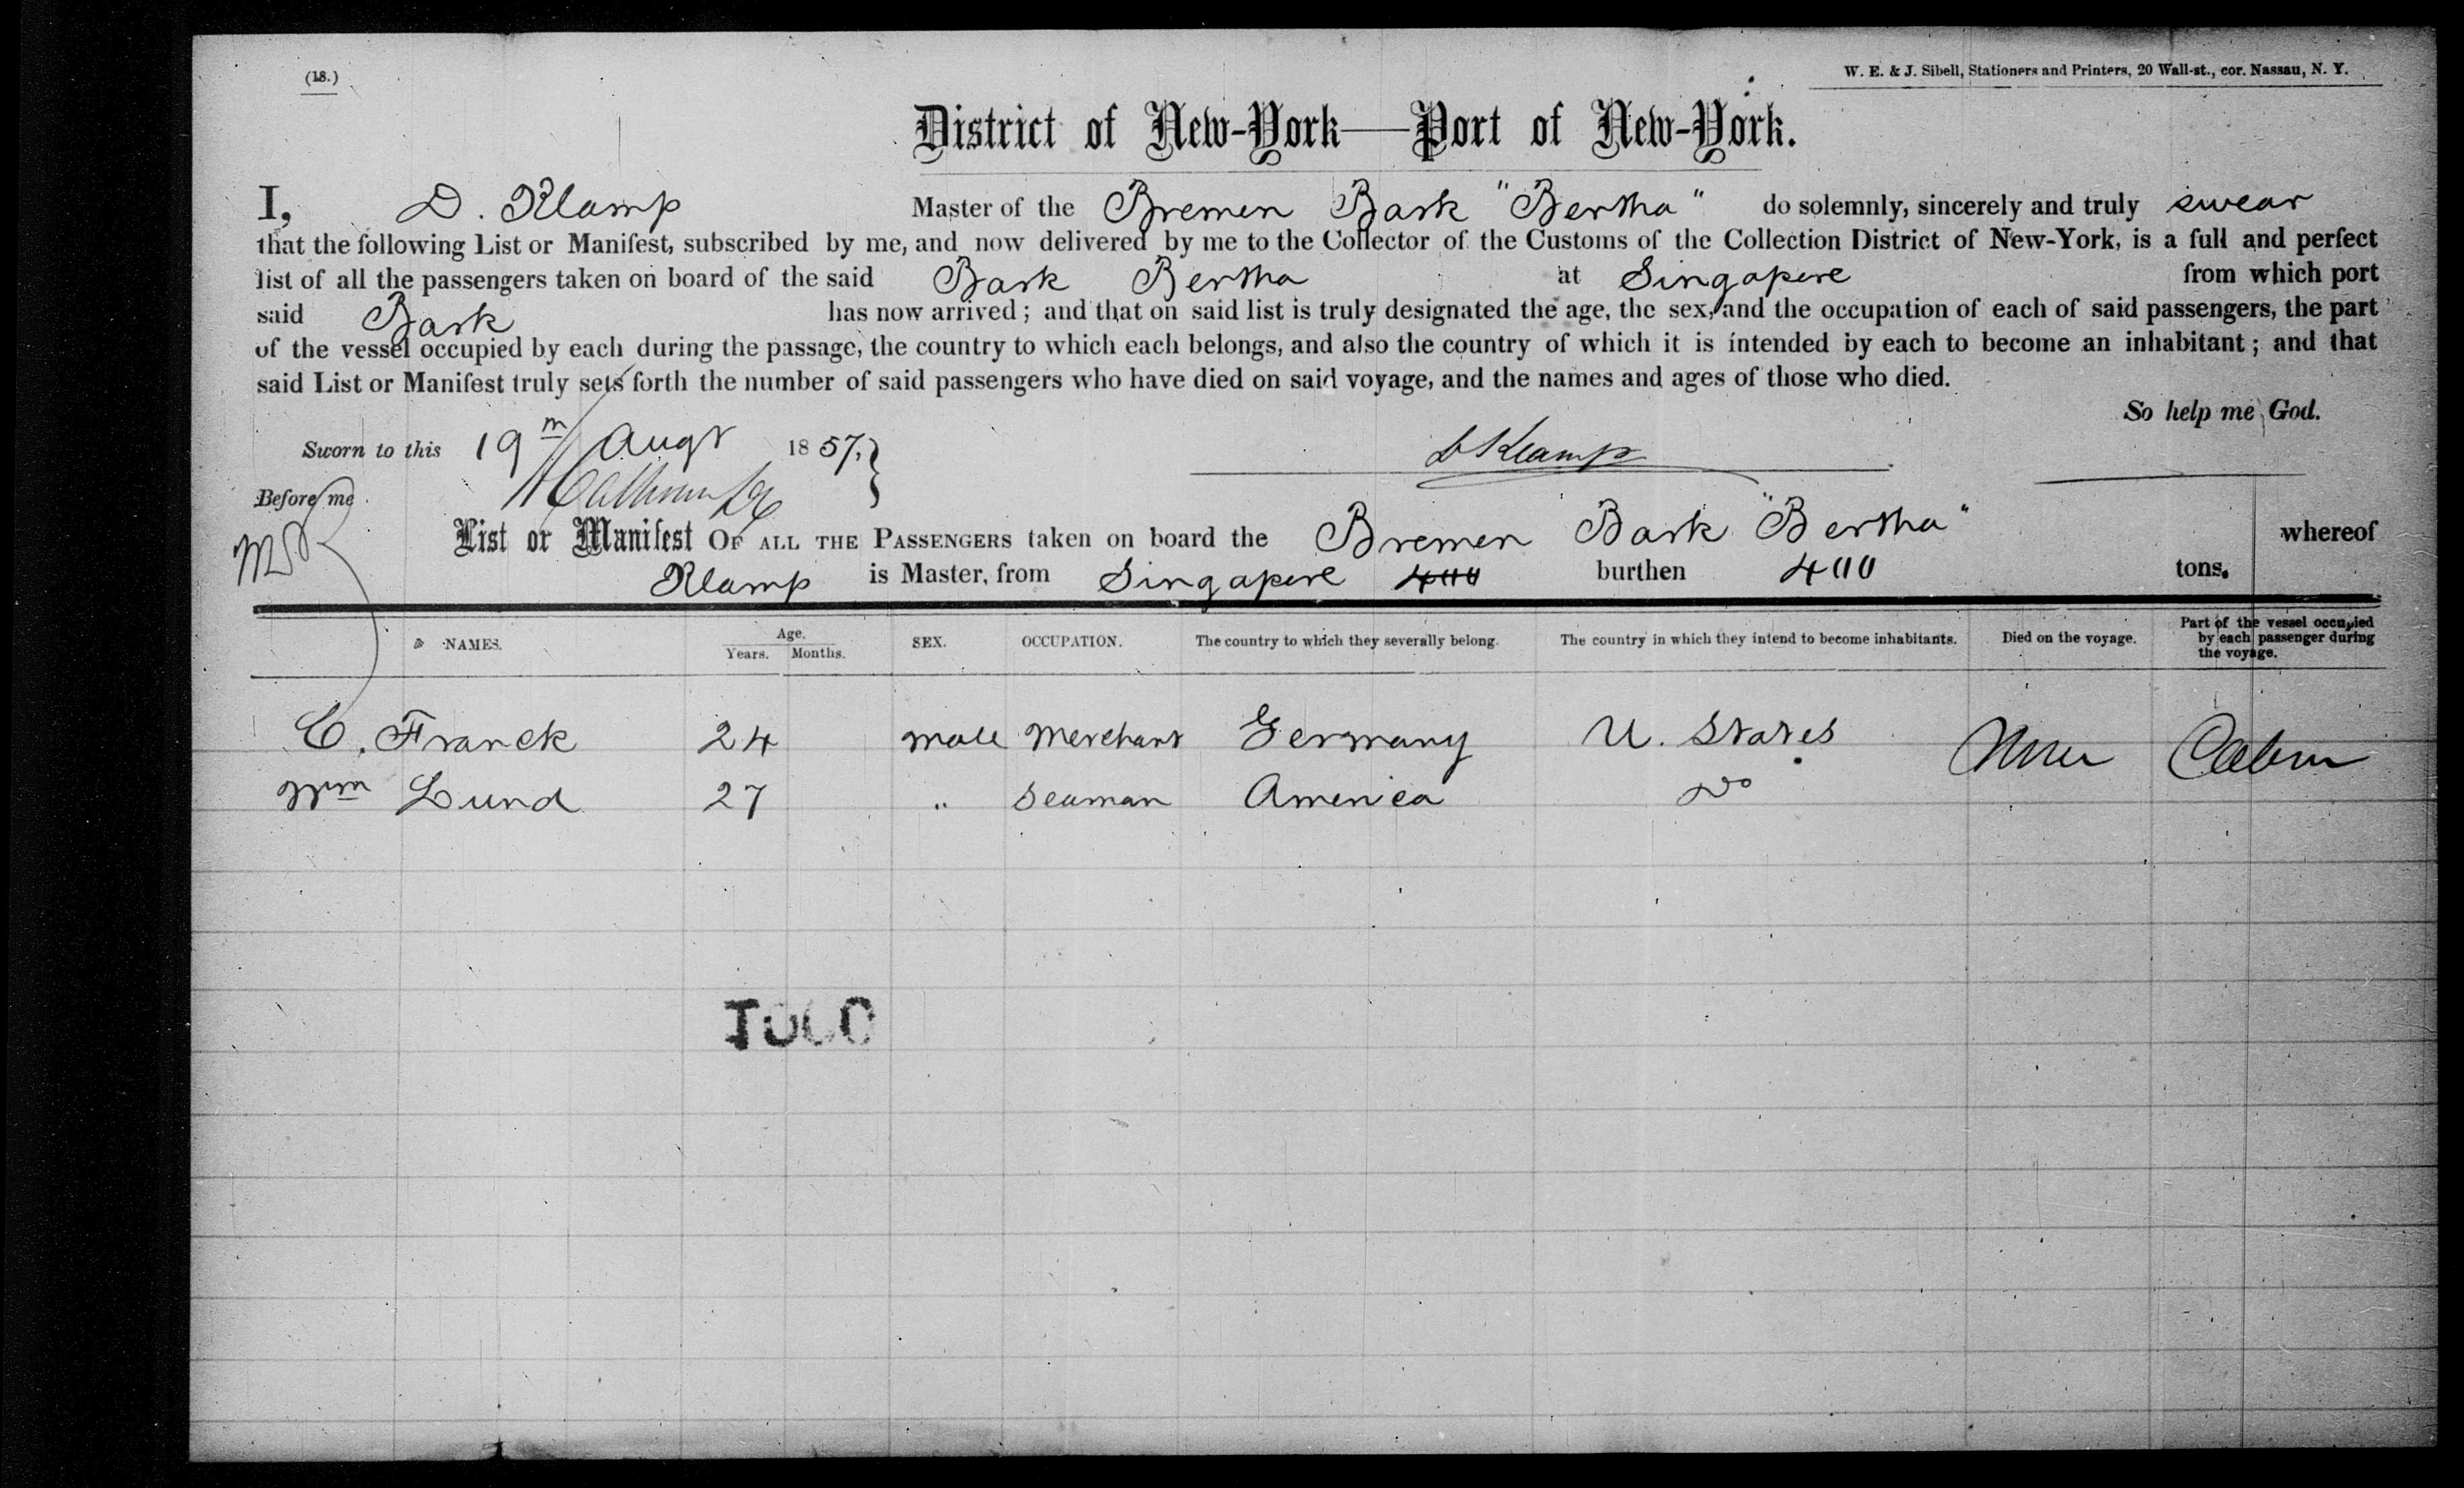 (18.)
W. E. & J. Sibell, Stationers and Printers, 20 Wall-st., cor. Nassau, N. Y.
District of New-York—Port of New-York.
I, D. Klamp Master of the Bremen Bark "Bertha" do solemnly, sincerely and truly swear
that the following List or Manifest, subscribed by me, and now delivered by me to the Collector of the Customs of the Collection District of New-York, is a full and perfect
list of all the passengers taken on board of the said Bark Bertha at Singapore from which port
said Bark has now arrived; and that on said list is truly designated the age, the sex, and the occupation of each of said passengers, the part
of the vessel occupied by each during the passage, the country to which each belongs, and also the country of which it is intended by each to become an inhabitant; and that
said List or Manifest truly sets forth the number of said passengers who have died on said voyage, and the names and ages of those who died.
So help me God.
Sworn to this 19th Augt 1857, D Klamp
Before me
List or Manifest OF ALL THE PASSENGERS taken on board the Bremen Bark "Bertha" whereof
Klamp is Master, from Singapore 400 burthen 400 tons.
NAMES. Age. Years. Months. SEX. OCCUPATION. The country to which they severally belong. The country in which they intend to become inhabitants. Died on the voyage. Part of the vessel occupied by each passenger during the voyage.
C. Franck 24 male Merchant Germany U. States None Cabin
Wm Lund 27 " Seaman America Do